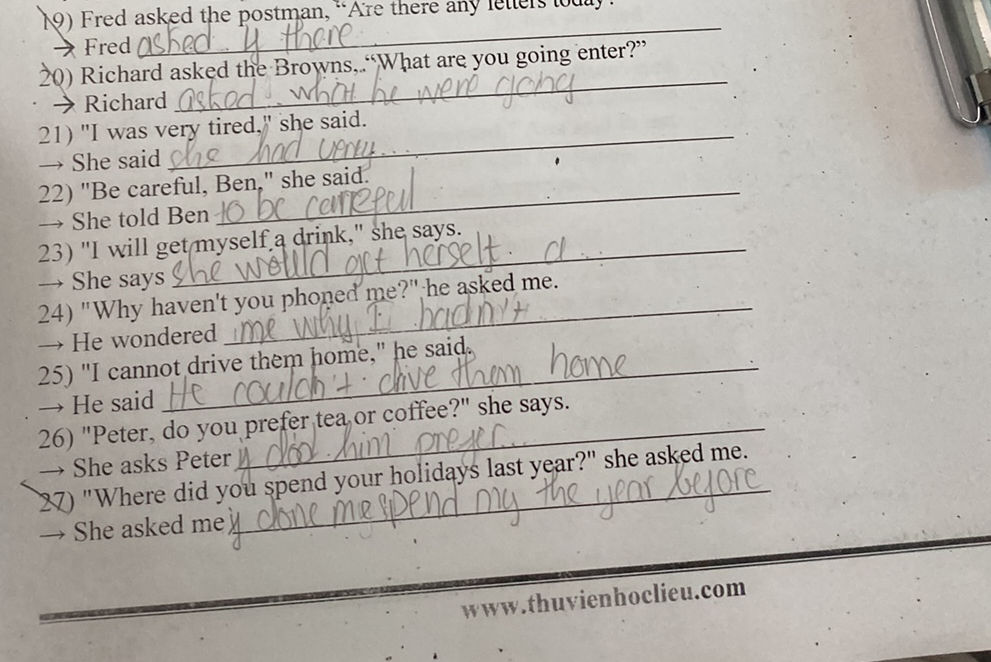 19) Fred asked the postman, “Are there any letters today?
→ Fred asked . y there
20) Richard asked the Browns, “What are you going enter?”
→ Richard asked . what he were going
21) "I was very tired," she said.
→ She said she had very...
22) "Be careful, Ben," she said.
→ She told Ben to be carreful
23) "I will get myself a drink," she says.
→ She says she would get herself. a...
24) "Why haven't you phoned me?" he asked me.
→ He wondered me why I hadn't
25) "I cannot drive them home," he said.
→ He said He couldn't drive them home
26) "Peter, do you prefer tea or coffee?" she says.
→ She asks Peter if did him prefer...
27) "Where did you spend your holidays last year?" she asked me.
→ She asked me if done me spend my the year before
www.thuvienhoclieu.com